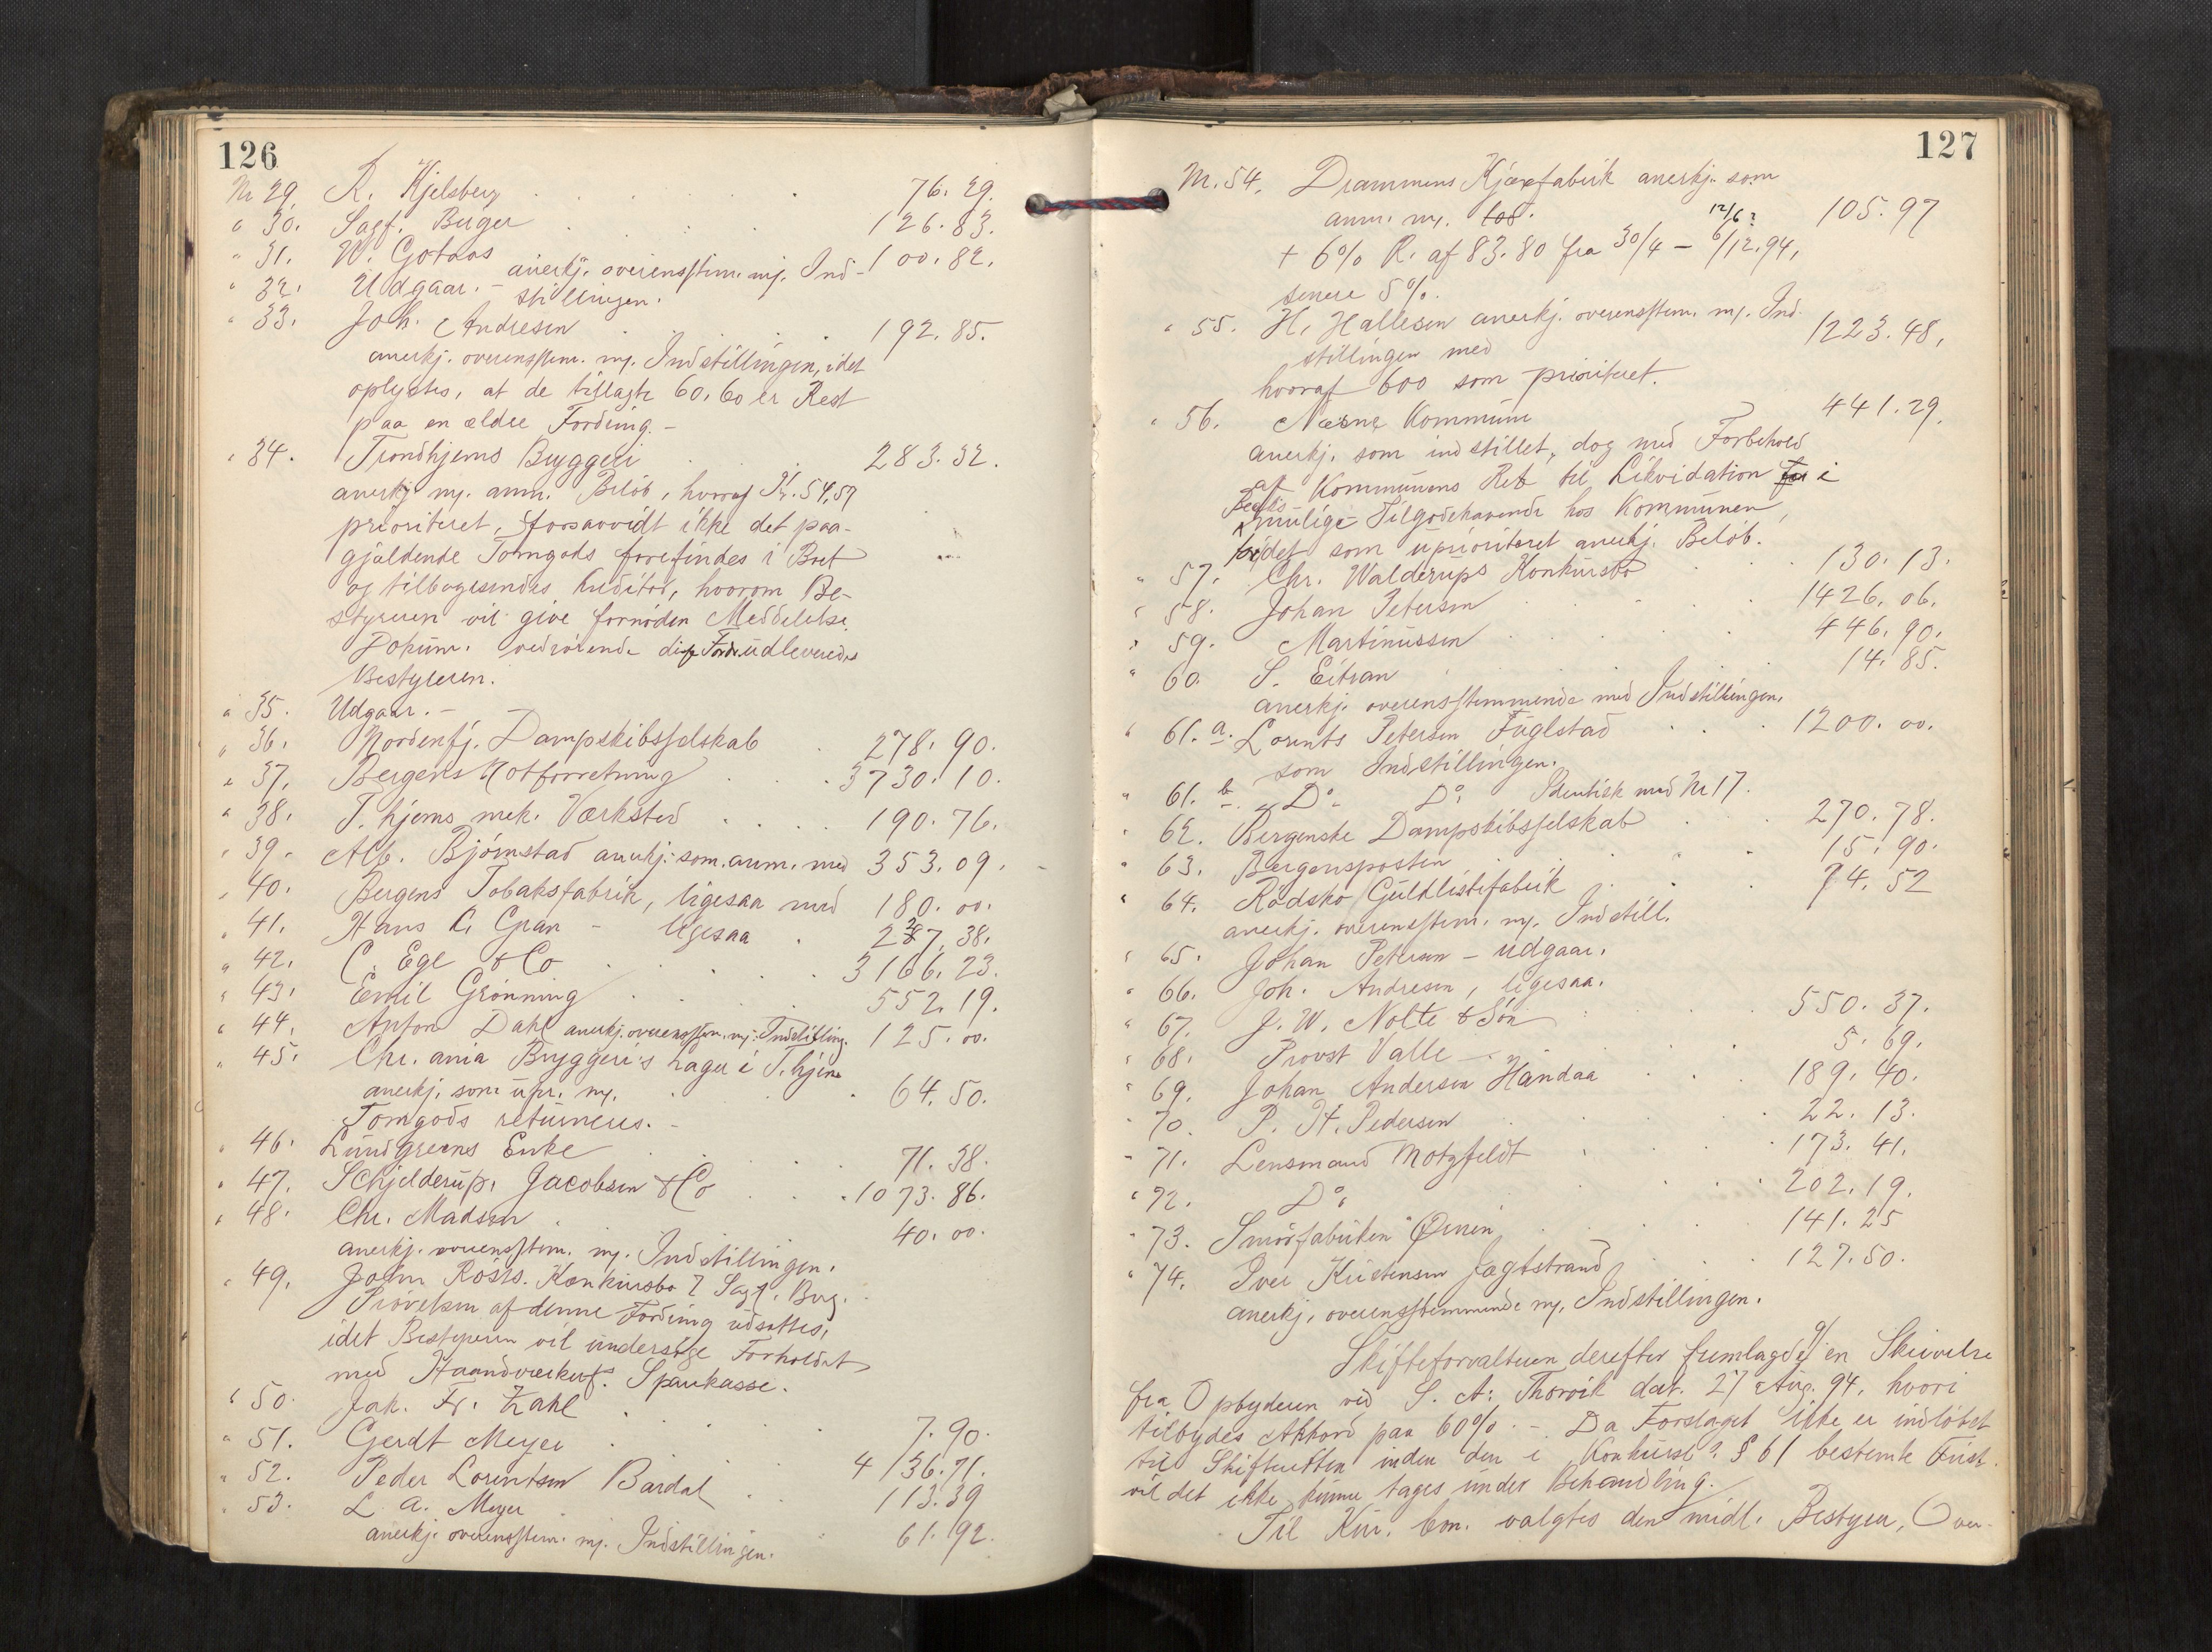 126
Nr 29. R. Kjelsberg 76.29.
" 30. Sagf. Berger 126.83.
" 31. W. Gotaas 100.82.
anerkj. overensstem. m/. Ind-
" 32. Udgaar. - stillingen.
" 33. Joh. Andresen 192.85.
anerkj. overensstem. m/. Indstillingen, idet
oplystes, at de tillagte 60.60 er Rest
paa en ældre Fordring. -
" 34. Trondhjems Bryggeri 283.32.
anerkj. m/. anm. Beløb, hvoraf Kr. 54,57
prioriteret, forsaavidt ikke det paa-
gjældende Tomgods forefindes i Boet
og tilbagesendes Kreditor, hvorom Be-
styreren vil give fornøden Meddelelse.
Dokum. vedrørende disse Fordr. udleveredes
Bestyreren.
" 35. Udgaar. -
" 36. Nordenfj. Dampskibsselskab 278.90.
" 37. Bergens Notforretning 3730.10.
" 38. T.hjems mek. Værksted 190.76.
" 39. Alb. Bjørnstad anerkj. som anm. med 353.09.
" 40. Bergens Tobaksfabrik, ligesaa med 180.00.
" 41. Hans C. Gran - ligesaa 227.38.
" 42. C. Ege & Co 3166.23.
" 43. Emil Grønning 552.19.
" 44. Anton Dahl anerkj. overensstem. m/. Indstilling. 125.00.
" 45. Chr.ania Bryggeri's Lager i T.hjem
anerkj. som upr. m/. 64.50.
Tomgods returneres. -
" 46. Lundgreens Enke 71.38.
" 47. Schjelderup, Jacobsen & Co 1073.86.
" 48. Chr. Madsen 40.00.
anerkj. overensstem. m/. Indstillingen.
" 49. John Røsts. Konkursbo Sagf. Berg.
Prøvelsen af denne Fordring udsattes,
idet Bestyreren vil undersøge Forholdet
med Haandværkerf. Sparekasse.
" 50. Jak. Fr. Zahl 7.90.
" 51. Gerdt Meyer 4136.71.
" 52. Peder Lorentsen Bardal 113.39
" 53. L. A. Meyer 61.92.
anerkj. overensstem. m/. Indstillingen.
127
Nr. 54. Drammens Kjæxfabrik anerkj. som
anm. m/. 105.97
12/6?
+ 6% R. af 83.80 fra 30/4 - 6/12.94,
senere 5%.
" 55. H. Hallesen anerkj. overensstem. m/. Ind-
stillingen med 1223.48,
hvoraf 600 som prioriteret.
" 56. Næsne Kommune 441.29.
anerkj. som indstillet, dog med Forbehold
af Kommunens Ret til Likvidation for i
Boets
mulige Tilgodehavende hos Kommunen,
det som uprioriteret anerkj. Beløb.
" 57. Chr. Walderups Konkursbo 130.13.
" 58. Johan Petersen 1426.06.
" 59. Martinussen 446.90.
" 60. S. Eitran 14.85.
anerkj. overensstemmende med Indstillingen.
" 61.a. Lorents Petersen Fuglstad 1200.00.
som Indstillingen.
" 61.b. Do Do Identisk med Nr 17.
" 62. Bergenske Dampskibsselskab 270.78.
" 63. Bergensposten 15.90.
" 64. Rødsko Guldlistefabrik 74.52
anerkj. overensstem. m/. Indstill.
" 65. Johan Petersen - udgaar.
" 66. Joh. Andresen, ligesaa.
" 67. J. W. Nolte & Søn 550.37.
" 68. Provst Valle 5.69.
" 69. Johan Andersen Handaa 189.40.
" 70. P. H. Pedersen 22.13.
" 71. Lensmand Motzfeldt 173.41.
" 72. Do 202.19.
" 73. Smørfabriken "Ørnen" 141.25
" 74. Iver Kristensen Jagtstrand 127.50.
anerkj. overensstemmende m/. Indstillingen.
Skifteforvalteren derefter fremlagde en Skrivelse
fra Opbyderen ved S. A. Thorvik dat. 27 Aug. 94, hvori
tilbydes Akkord paa 60%. - Da Forslaget ikke er indløbet
til Skifteretten inden den i Konkursl. § 61 bestemte Frist
vil det ikke kunne tages under Behandling.
Til Kur. bon. valgtes den midl. Bestyrer, Over-